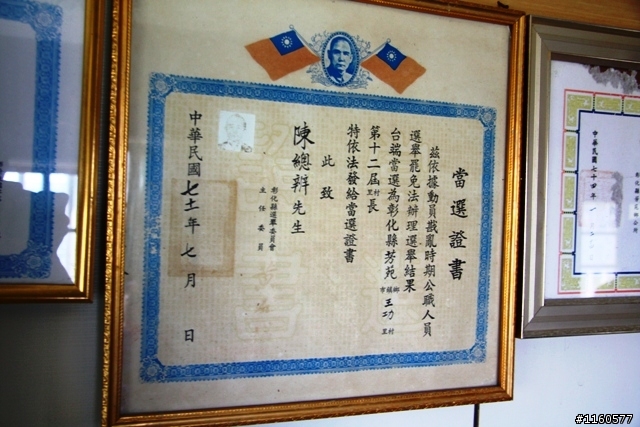 當選證書
茲依據動員戡亂時期公職人員
選舉罷免法辦理選舉結果
台端當選為彰化縣芳苑鄉鎮市王功村里
第十二屆村里長
特依法發給當選證書
此致
陳總辦先生
彰化縣選舉委員會
主任委員
中華民國七十一年七月 日
中華民國七十四年
#1160577